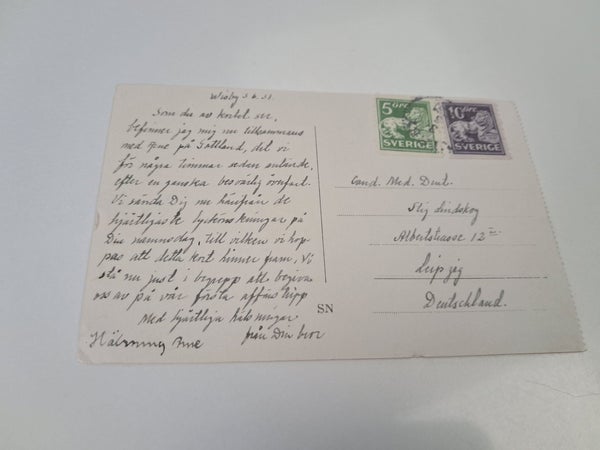 Wisby 3.6.38.
Som du av kortet ser,
befinner jag mig nu tillsammans
med Ame på Gottland, det vi
för några timmar sedan anlände,
efter en ganska besvärlig överfart.
Vi sända Dig nu härifrån de
hjärtligaste lyckönskningar på
Din namnsdag, till vilken vi hop-
pas att detta kort hinner fram. Vi
stå nu just i begrepp att begiva
oss av på vår första affärs
Med hjärtliga hälsningar
från Din bror
Hälsning Ame
5 ÖRE
SVERIGE
10 ÖRE
SVERIGE
Cand. Med. Dent.
Stig Lindskog
Albertstrasse 12 III
Leipzig
Deutschland.
SN